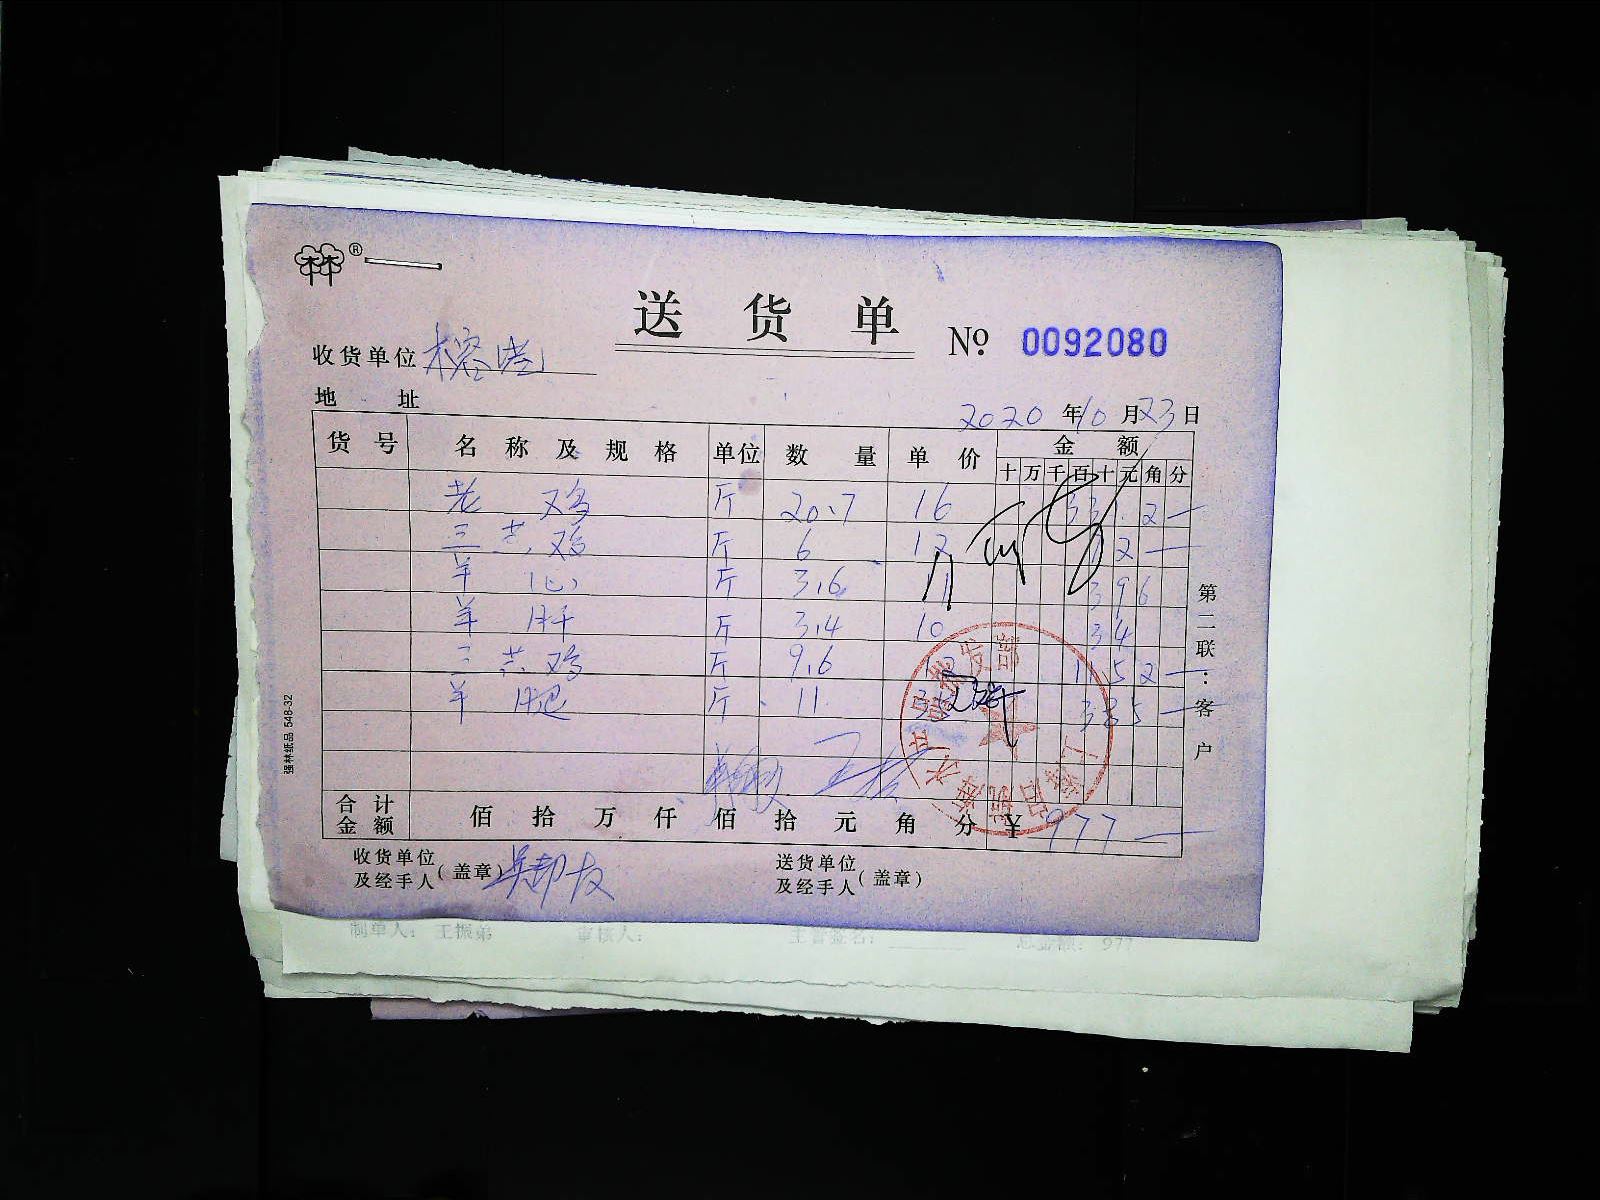 送 货 单
№ 0092080
收货单位
地 址
2020 年 10 月 23 日
货 号 名 称 及 规 格 单位 数 量 单 价 金 额
十 万 千 百 十 元 角 分
老 鸡 斤 20.7 16 331.2
三黄鸡 斤 6 12 72
羊 心 斤 3.6 11 39 6
羊 肝 斤 3.4 10 34
三黄鸡 斤 9.6 12 115 2
羊 腿 斤 11 35 385
合 计
金 额
佰 拾 万 仟 佰 拾 元 角 分 ¥ 977
收货单位
及经手人 (盖章)
送货单位
及经手人 (盖章)
第二联:客户
强林纸品 548-32
制单人: 王振弟 审核人: 主管签名: 总金额: 977